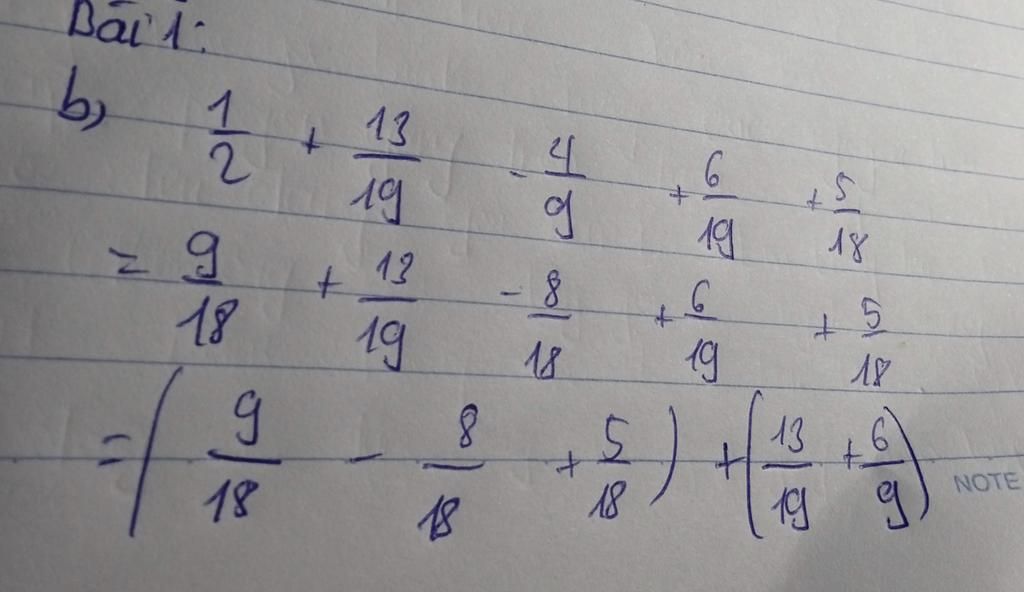 Bài 1:
b, 1/2 + 13/19 - 4/9 + 6/19 + 5/18
= 9/18 + 13/19 - 8/18 + 6/19 + 5/18
= (9/18 - 8/18 + 5/18) + (13/19 + 6/9)
NOTE